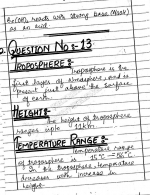 Be(OH)2 reacts with strong base (NaOH)
as an acid.
QUESTION No :- 13
TROPOSPHERE :-
Troposphere is the
first layer of atmosphere and is
present just above the surface
of earth.
HEIGHT :-
The height of troposphere
ranges upto 11km.
TEMPERATURE RANGE :-
Temperature range
of troposphere is 15°C -56°C
In this troposphere, temperature
decreases with increase in
height.